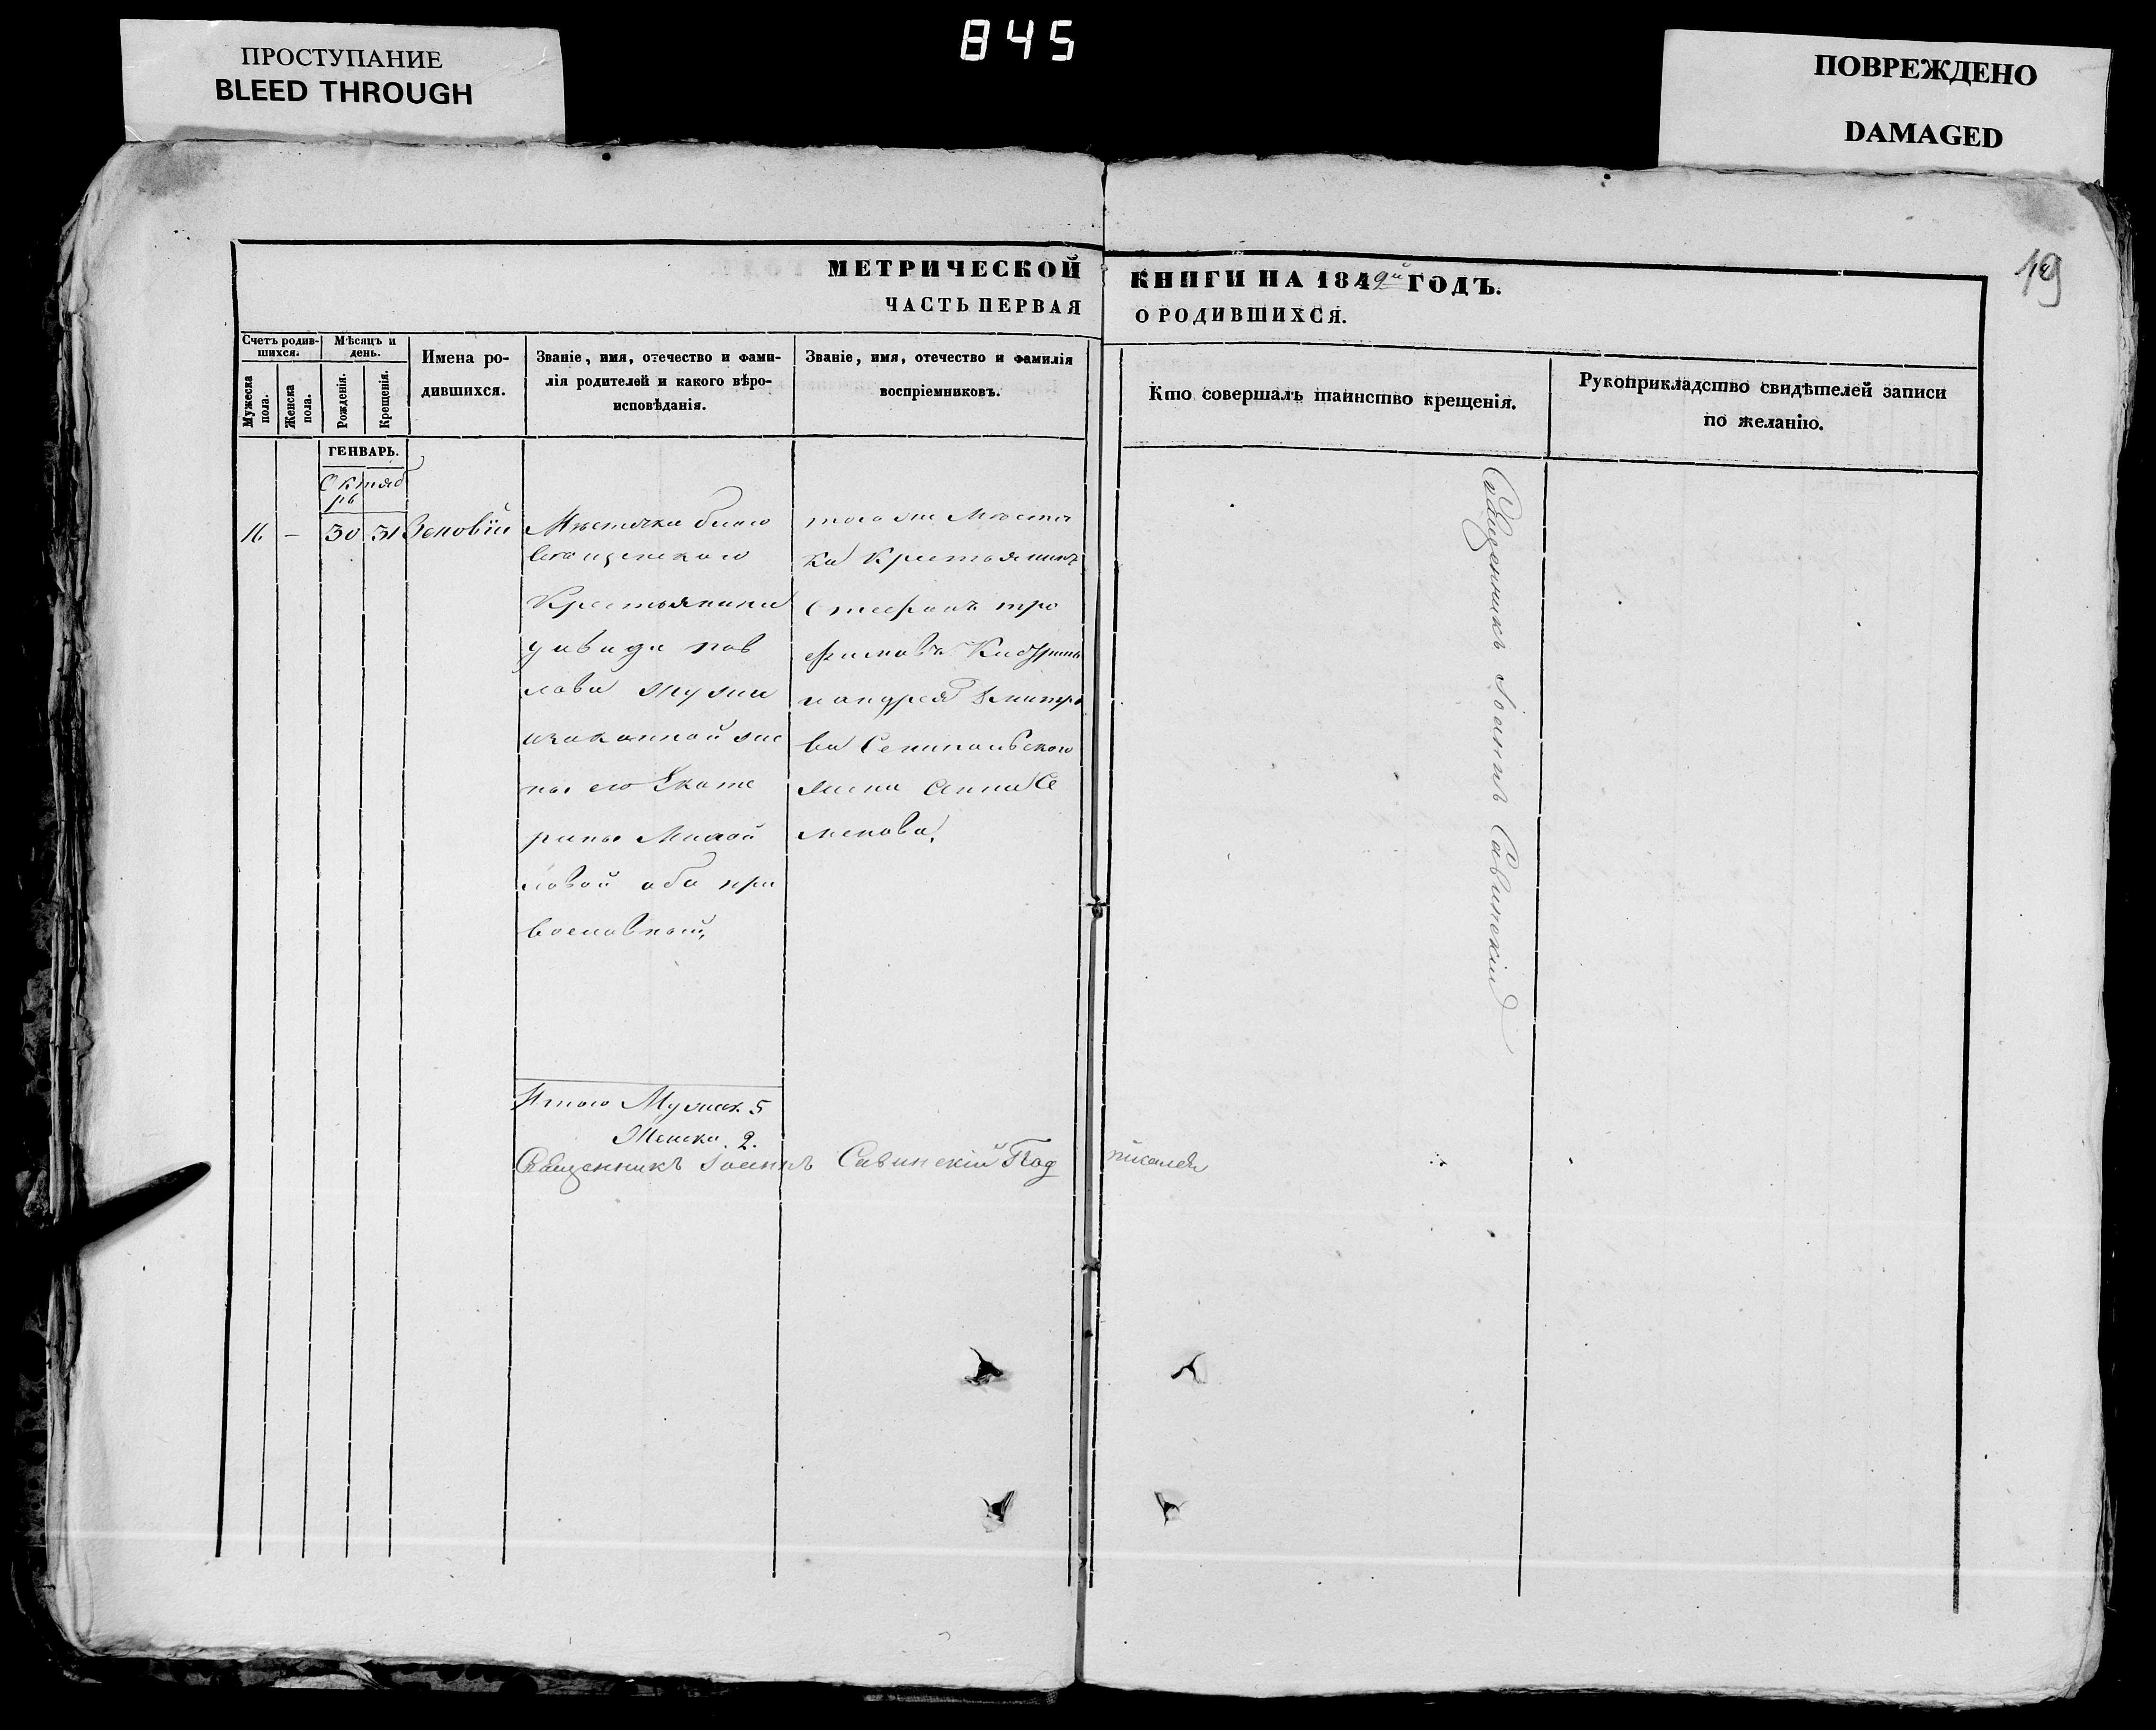 845
ПРОСТУПАНИЕ
BLEED THROUGH
ПОВРЕЖДЕНО
DAMAGED
19
МЕТРИЧЕСКОЙ КНИГИ НА 1849й ГОДЪ.
ЧАСТЬ ПЕРВАЯ О РОДИВШИХСЯ.
Счетъ родив-
шихся.
Мужеска пола.
Женска пола.
Мѣсяцъ и
день.
Рожденія.
Крещенія.
Имена ро-
дившихся.
Званіе, имя, отечество и фами-
лія родителей и какого вѣро-
исповѣданія.
Званіе, имя, отечество и фамилія
воспріемниковъ.
Кто совершалъ таинство крещенія.
Рукоприкладство свидѣтелей записи
по желанію.
ГЕНВАРЬ.
Октяб
рь
16 – 30 31 Зеновій
Мѣстечка
Крестьянина
давида пав
лова
законной же
ны его Екате
рины
ловой оба пра
вославныи,
того же Местеч
ка Крестьянинъ
Стефанъ тро
фимовъ
и андрея Дмитрі
ва
жена Анна Се
менова,
Священникъ Іоаннъ Савинскій
Итого Мужск 5
Женска. 2.
Священникъ Іоаннъ Савинскій Под писалъ